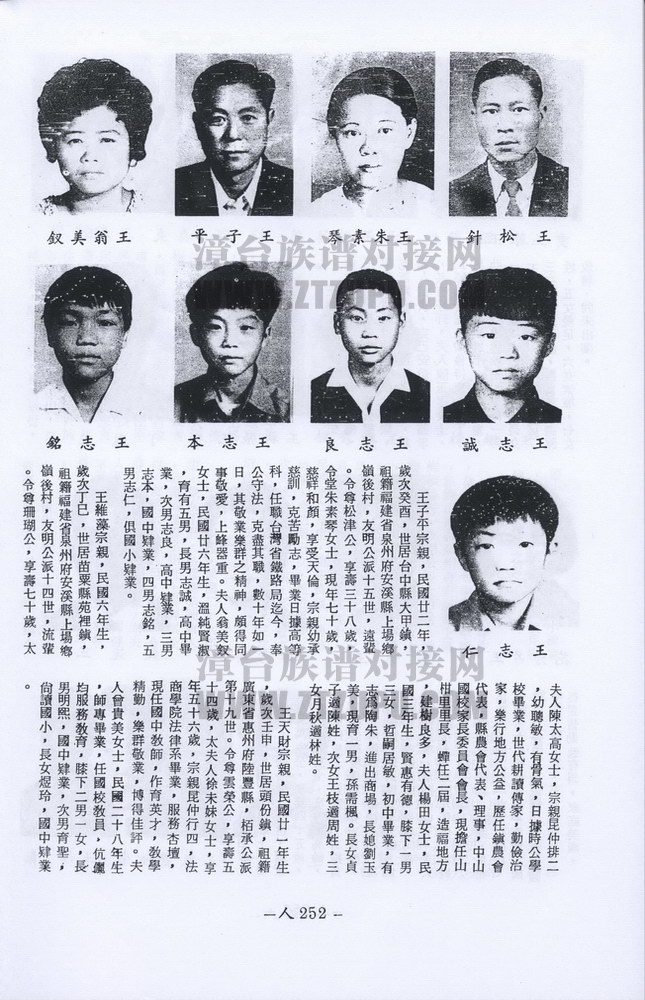 王松針
王朱素琴
王子平
王翁美釵
漳台族谱对接网
WWW.ZTZUPU.COM
王志誠
王志良
王志本
王志銘
王志仁
王子平宗親，民國廿二年，
歲次癸酉，世居台中縣大甲鎮，
祖籍福建省泉州府安溪縣上場鄉
嶺後村，友明公派十五世，遠蜚
。令尊松津公，享壽三十八歲，
令堂朱素琴女士，現年七十歲，
慈祥和顏，享受天倫，宗親幼承
慈訓，克苦勵志，畢業日據高等
科，任職台灣省鐵路局迄今，奉
公守法，克盡其職，數十年如一
日，其敬業樂群之精神，頗得同
事敬愛，上峰器重。夫人翁美釵
女士，民國廿六年生，溫純賢淑
，育有五男，長男志誠，高中畢
業，次男志良，高中肄業，三男
志本，國中肄業，四男志銘，五
男志仁，俱國小肄業。
王維藻宗親，民國六年生，
歲次丁巳，世居苗栗縣苑裡鎮，
祖籍福建省泉州府安溪縣上場鄉
嶺後村，友明公派十四世，流蜚
。令尊珊瑚公，享壽七十歲，太
夫人陳太高女士，宗親昆仲排二
，幼聰敏，有骨氣，日據時公學
校畢業，世代耕讀傳家，勤儉治
家，樂行地方公益，歷任鎮農會
代表、縣農會代表、理事，中山
國校家長委員會會長，現擔任山
柑里里長，蟬任二屆，造福地方
，建樹良多，夫人楊田女士，民
國三年生，賢惠有德，膝下一男
三女，哲嗣居敏，初中畢業，有
志為陶朱，進出商場，長媳劉玉
美，現育一男，孫需楓。長女貞
子適陳姓，次女王枝適周姓，三
女月秋適林姓。
王天財宗親，民國廿一年生
，歲次壬申，世居頭份鎮，祖籍
廣東省惠州府陸豐縣，栢承公派
第十九世。令尊雲榮公，享壽五
十四歲，太夫人徐未妹女士，享
年五十六歲，宗親昆仲行四，法
商學院法律系畢業，服務杏壇，
現任國中教師，作育英才，教學
精勤，樂群敬業，博得佳評。夫
人曾貴美女士，民國二十八年生
，師專畢業，任國校教員，伉儷
均服務教育，膝下二男一女，長
男明熙，國中肄業，次男育聖，
尙讀國小，長女煜玲，國中肄業
。
漳台族谱对接网
WWW.ZTZUPU.COM
－人252－